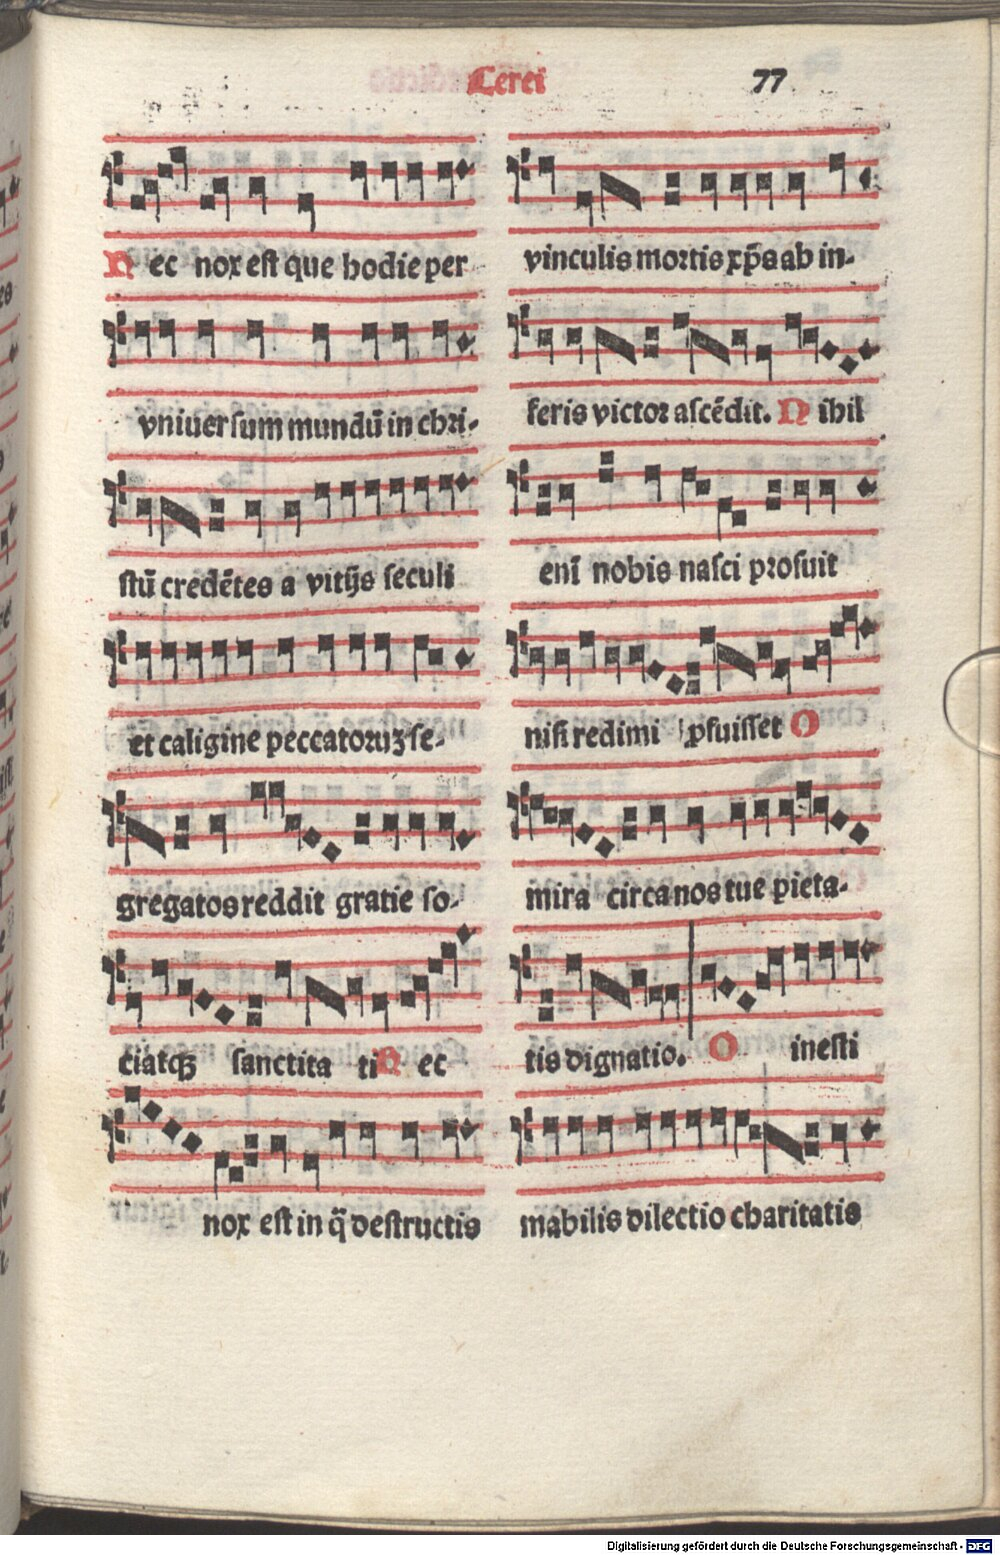 Cerei 77
Nec nox est que hodie per
vniuersum mundū in chri-
stū credētes a vitijs seculi
et caligine peccatoruꝫ se-
gregatos reddit gratie so-
ciatqꝫ sanctitati Nec
nox est in q̄ destructis
vinculis mortis xp̄s ab in-
feris victor ascēdit. Nihil
enī nobis nasci profuit
nisi redimi ꝓfuisset O
mira circa nos tue pieta-
tis dignatio. O inesti
mabilis dilectio charitatis
Digitalisierung gefördert durch die Deutsche Forschungsgemeinschaft - DFG